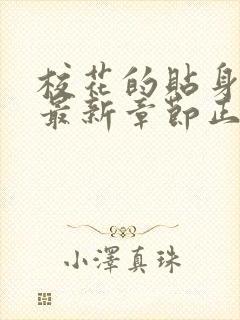 校花的貼身
最新章節正
小澤真珠